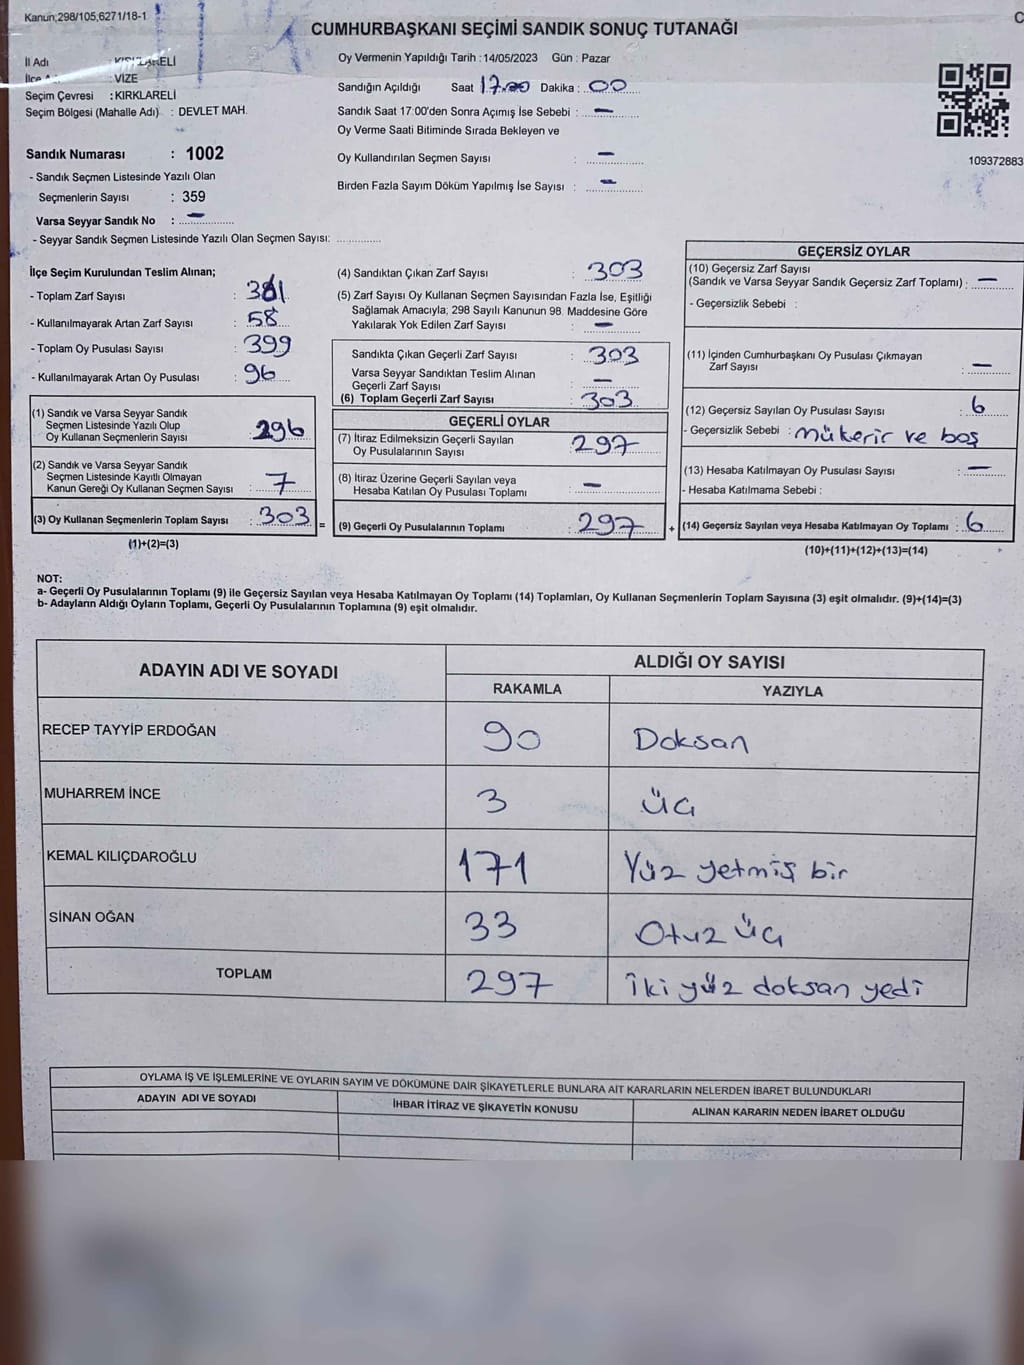 Kanun;298/105,6271/18-1
CUMHURBAŞKANI SEÇİMİ SANDIK SONUÇ TUTANAĞI
İl Adı : KIRKLARELİ
İlçe : VİZE
Seçim Çevresi : KIRKLARELİ
Seçim Bölgesi (Mahalle Adı) : DEVLET MAH.
Sandık Numarası : 1002
- Sandık Seçmen Listesinde Yazılı Olan
Seçmenlerin Sayısı : 359
Varsa Seyyar Sandık No : –
- Seyyar Sandık Seçmen Listesinde Yazılı Olan Seçmen Sayısı: ..............
Oy Vermenin Yapıldığı Tarih : 14/05/2023 Gün : Pazar
Sandığın Açıldığı Saat 17.00 Dakika : 00
Sandık Saat 17:00'den Sonra Açımış İse Sebebi : –
Oy Verme Saati Bitiminde Sırada Bekleyen ve
Oy Kullandırılan Seçmen Sayısı : –
Birden Fazla Sayım Döküm Yapılmış İse Sayısı : –
109372883
İlçe Seçim Kurulundan Teslim Alınan;
- Toplam Zarf Sayısı : 361
- Kullanılmayarak Artan Zarf Sayısı : 58
- Toplam Oy Pusulası Sayısı : 399
- Kullanılmayarak Artan Oy Pusulası : 96
(1) Sandık ve Varsa Seyyar Sandık
Seçmen Listesinde Yazılı Olup
Oy Kullanan Seçmenlerin Sayısı : 296
(2) Sandık ve Varsa Seyyar Sandık
Seçmen Listesinde Kayıtlı Olmayan
Kanun Gereği Oy Kullanan Seçmen Sayısı : 7
(3) Oy Kullanan Seçmenlerin Toplam Sayısı : 303 =
(1)+(2)=(3)
(4) Sandıktan Çıkan Zarf Sayısı : 303
(5) Zarf Sayısı Oy Kullanan Seçmen Sayısından Fazla İse, Eşitliği
Sağlamak Amacıyla; 298 Sayılı Kanunun 98. Maddesine Göre
Yakılarak Yok Edilen Zarf Sayısı : –
Sandıkta Çıkan Geçerli Zarf Sayısı : 303
Varsa Seyyar Sandıktan Teslim Alınan
Geçerli Zarf Sayısı : –
(6) Toplam Geçerli Zarf Sayısı : 303
GEÇERLİ OYLAR
(7) İtiraz Edilmeksizin Geçerli Sayılan
Oy Pusulalarının Sayısı : 297
(8) İtiraz Üzerine Geçerli Sayılan veya
Hesaba Katılan Oy Pusulası Toplamı : –
(9) Geçerli Oy Pusulalarının Toplamı : 297 +
GEÇERSİZ OYLAR
(10) Geçersiz Zarf Sayısı
(Sandık ve Varsa Seyyar Sandık Geçersiz Zarf Toplamı) : –
- Geçersizlik Sebebi :
(11) İçinden Cumhurbaşkanı Oy Pusulası Çıkmayan
Zarf Sayısı : –
(12) Geçersiz Sayılan Oy Pusulası Sayısı : 6
- Geçersizlik Sebebi : mükerir ve boş
(13) Hesaba Katılmayan Oy Pusulası Sayısı : –
- Hesaba Katılmama Sebebi :
(14) Geçersiz Sayılan veya Hesaba Katılmayan Oy Toplamı : 6
(10)+(11)+(12)+(13)=(14)
NOT:
a- Geçerli Oy Pusulalarının Toplamı (9) ile Geçersiz Sayılan veya Hesaba Katılmayan Oy Toplamı (14) Toplamları, Oy Kullanan Seçmenlerin Toplam Sayısına (3) eşit olmalıdır. (9)+(14)=(3)
b- Adayların Aldığı Oyların Toplamı, Geçerli Oy Pusulalarının Toplamına (9) eşit olmalıdır.
ADAYIN ADI VE SOYADI ALDIĞI OY SAYISI
RAKAMLA YAZIYLA
RECEP TAYYİP ERDOĞAN 90 Doksan
MUHARREM İNCE 3 üç
KEMAL KILIÇDAROĞLU 171 Yüz yetmiş bir
SİNAN OĞAN 33 Otuz üç
TOPLAM 297 iki yüz doksan yedi
OYLAMA İŞ VE İŞLEMLERİNE VE OYLARIN SAYIM VE DÖKÜMÜNE DAİR ŞİKAYETLERLE BUNLARA AİT KARARLARIN NELERDEN İBARET BULUNDUKLARI
ADAYIN ADI VE SOYADI İHBAR İTİRAZ VE ŞİKAYETİN KONUSU ALINAN KARARIN NEDEN İBARET OLDUĞU